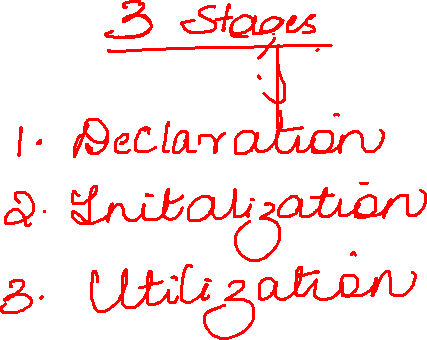 3 Stages
1. Declaration
2. Initalization
3. Utilization